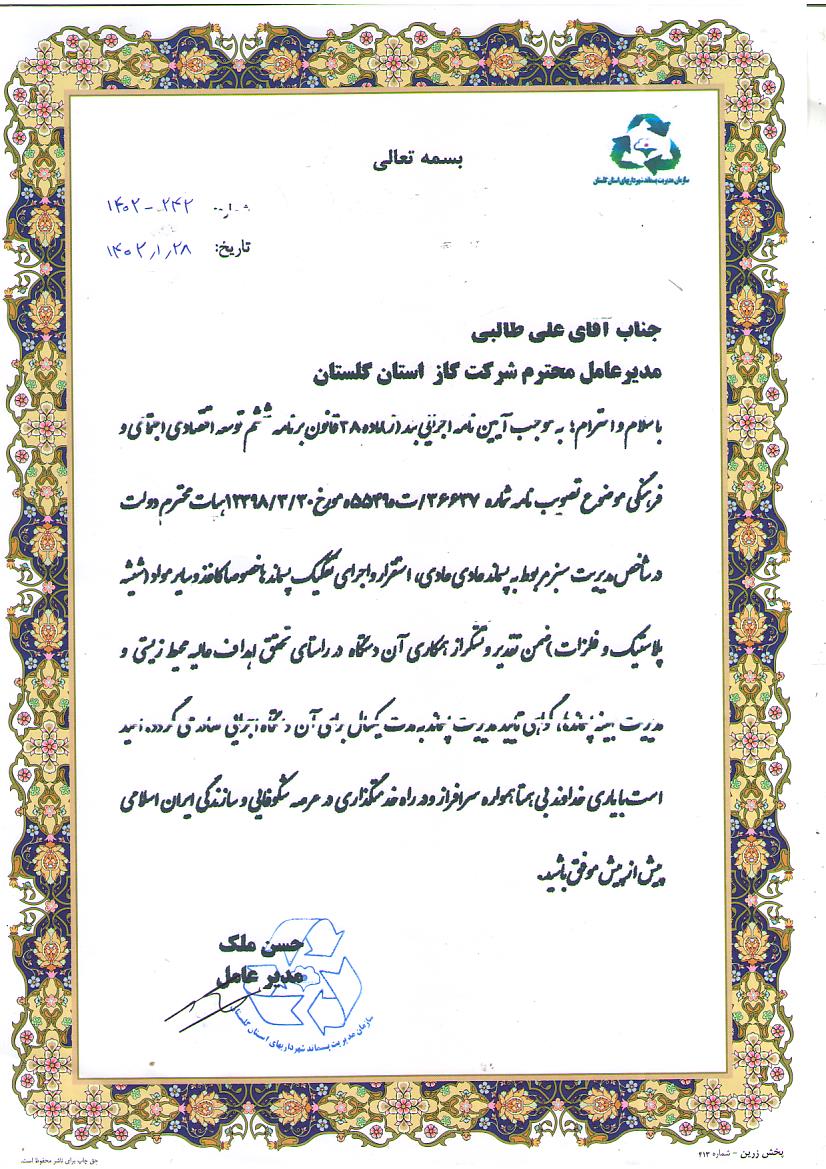 سازمان مدیریت پسماند شهرداریهای استان گلستان
بسمه تعالی
شماره: ۲۴۲-۱۴۰۲
تاریخ: ۱۴۰۲/۱/۲۸
جناب آقای علی طالبی
مدیرعامل محترم شرکت گاز استان گلستان
باسلام و احترام؛ به موجب آیین نامه اجرایی بند از ماده ۳۸ قانون برنامه ششم توسعه اقتصادی اجتماعی و
فرهنگی موضوع تصویب نامه شماره /ت ه مورخ ۱۳۹۸/۳/۲۰ هیات محترم دولت
در شاخص مدیریت سبز مربوط به پسماند عادی، استقرار و اجرای تفکیک پسماندها خصوصا کاغذ و سایر مواد (شیشه
پلاستیک و فلزات) ضمن تقدیر و تشکر از همکاری آن دستگاه در راستای تحقق اهداف عالیه محیط زیستی و
مدیریت بهینه پسماندها، گواهی تایید مدیریت پسماند به مدت یکسال برای آن دستگاه اجرایی صادر می گردد. امید
است با یاری خداوند بی همتا همواره سرافراز و در راه خدمتگذاری در عرصه شکوفایی و سازندگی ایران اسلامی
بیش از پیش موفق باشید.
حسن ملک
مدیر عامل
سازمان مدیریت پسماند شهرداریهای استان گلستان
پخش زرین - شماره ۴۱۳
حق چاپ برای ناشر محفوظ است.